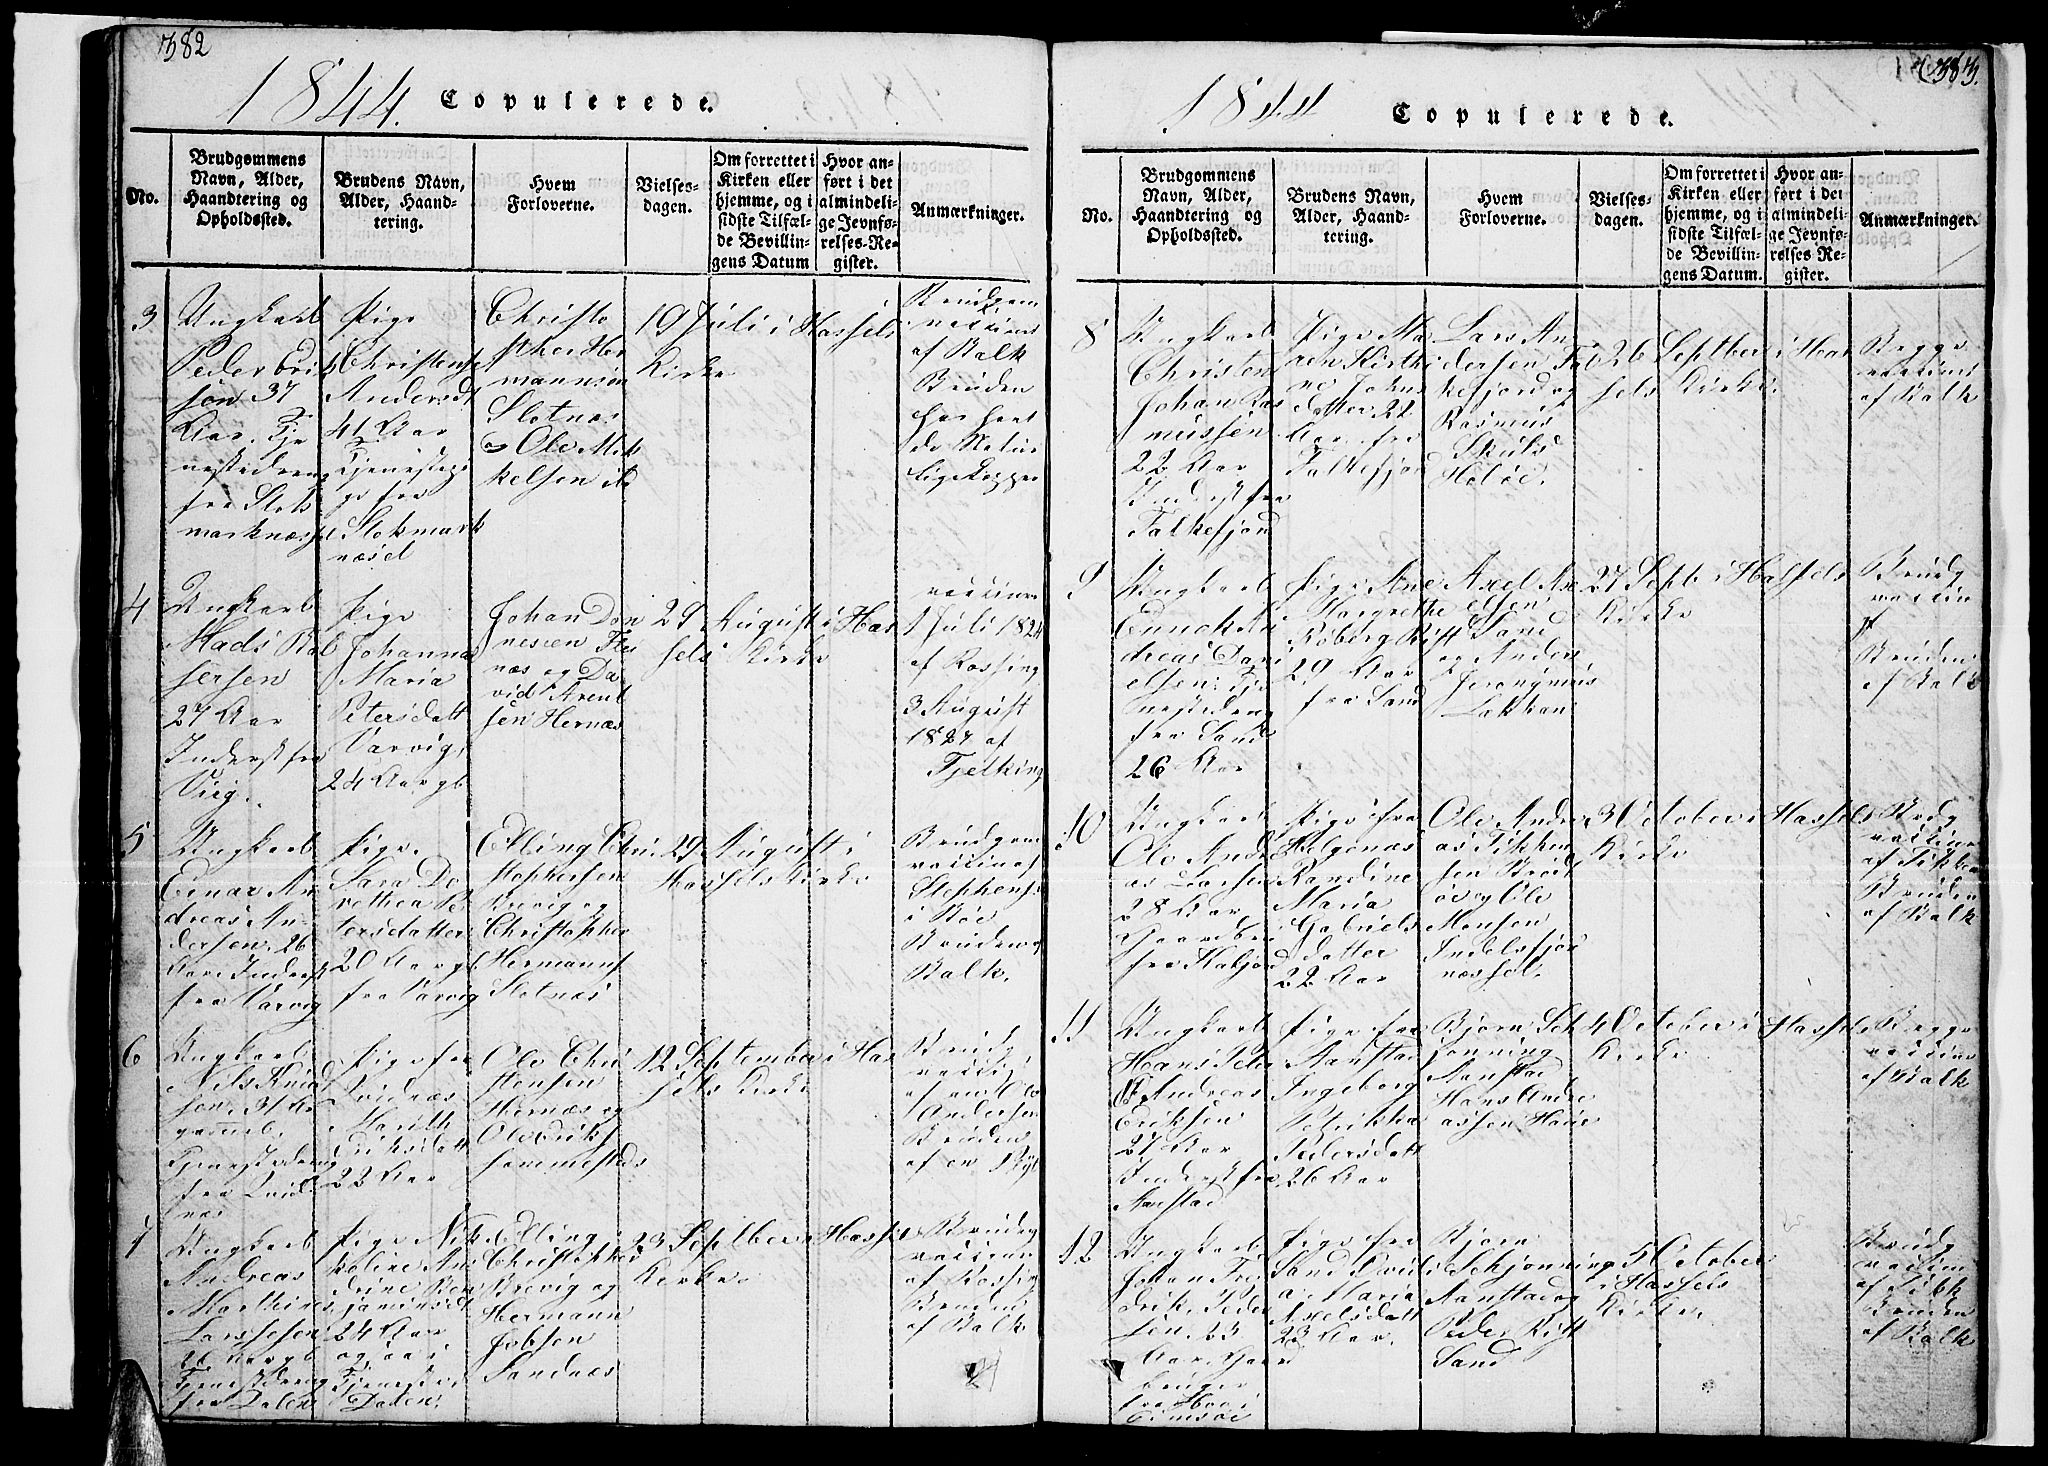 382
1844. Copulerede.
No.
Brudgommens
Navn, Alder,
Haandtering og
Opholdssted.
Brudens Navn,
Alder, Haand-
tering.
Hvem
Forloverne.
Vielses-
dagen.
Om forrettet i
Kirken eller
hjemme, og i
sidste Tilfæl-
de Bevillin-
gens Datum
Hvor an-
ført i det
almindeli-
ge Jevnfø-
relses-Re-
gister.
Anmærkninger.
3
Ungkarl
Peder Erik
sen 37
Aar. Tje
nestedreng
fra Stok
marknæsset
Pige
Christense
Andersdt
41 Aar
Tjenestepi
ge fra
Stokmark
næset
Christo
pher Her
mannsen
Slotnæs
og Ole Mik
kelsen
19 Juli i Hassels
Kirke
Brudgom
vaccineret
af Balk
Bruden
har havt
de Natur
lige Kopper
4
Ungkarl
Mads Bal
sersen
27 Aar
Inderst fra
Viig
Pige
Johanna
Maria
Petersdatt
Varvig,
24 Aar gl
Johan Dón
nesen
næs og Da
vid Arent
sen Hernæs
29 August i Has
sels Kirke
vaccineret
1 Juli 1824
af Rossing
3 August
1827 af
Tjelking
5
Ungkarl
Einar An
dreas An
dersen 26
Aar. Inderst
fra Varvig
Pige
Sara Do
rethea Pe
tersdatter
20 Aar gl
fra Varvig
Elling Chri
stophersen
Brevig og
Christopher
Hermanns
Slotnæs
29 August i
Hassels Kirke
Brudgom
vaccin af
Stephens
i Böe
Bruden af
Balk.
6
Ungkarl
Nils Knud
sen, 31 Ar
gammel.
Tjenestedreng
fra Quid
næs
Pige fra
Quidnæs
Marith
Eriksdatt
22 Aar
Ole Chri
stensen
Hernæs og
Ole Eriks
12 September i Has
sels Kirke
Brudg
vaccin
af en Ole
Andersen
Bruden
af en
7
Ungkarl
Andreas
Marthinus
Larssesen
Aar gl
Tjenestedreng
fra Dalen
Pige Nik
koline An
drine Ben
jaminsdt
24 Aar
ogsaa i
Tjeneste
Dalen,
Elling
Christophers
Brevig og
Hermann
Jobsen
Sandnæs
23 Septber i Hassels
Kirke.
Brudg
vaccin
af Rossing
Bruden
af Balk
383.
1844 Copulerede.
No.
Brudgommens
Navn, Alder,
Haandtering og
Opholdssted.
Brudens Navn,
Alder, Haand-
tering.
Hvem
Forloverne.
Vielses-
dagen.
Om forrettet i
Kirken eller
hjemme, og i
sidste Tilfæl-
de Bevillin-
gens Datum.
Hvor an-
ført i det
almindeli-
ge Jevnfø-
relses Re-
gister.
Anmærkninger.
8
Ungkarl
Christen
Johan Ras
mussen
22 Aar
Inderst fra
Falkefjord
Pige Ma
ren Kirsti
ne Johns
datter 22
Aar fra
Falkefjord
Lars An
dersen Fal
kefjord og
Rasmus
Skuls
26 Septber i Has
sels Kirke.
Begge
vaccineret
af Balk
9
Ungkarl
Enneck An
dreas Dani
elsen Tje
nestedreng
fra Sand
26 Aar
Pige Ane
Margrethe
Röberg Rist
29 Aar
fra Sand
Axel Ax
elsen
Sand
og Anders
Jeronymus
27 Septb i Hassels
Kirke
Brudg
vaccin
Bruden
af Balk
10
Ungkarl
Ole Andre
as Larsen
28 Aar
Gaardbr
fra
Pige fra
Helgenæs
Randine
Maria
Gabriels
datter
22 Aar
Ole Andre
as Tikken
sen Breit
öe og Ole
Monsen
Indelsfjor
næsset.
3 October i Hassels
Kirke
Brdg
vaccin
af Tikken
Bruden
af Balk
11
Ungkarl
Hans Peter
Andreas
Eriksen
27 Aar
Inderst fra
Anstad
Pige fra
Aanstad
Ingeborg
Petrikka
Pedersdatt
26 Aar
Bjorn Sch
jonning
Aanstad
Hans Andre
assen
4 October i Hassels
Kirke
Begge
vaccin
af Balk
12
Ungkarl
Johan Fre
drik Peder
sen. 23
Aar. Gaard
bruger
fra
Pige fra
Sand
Maria
Axelsdatt
23 Aar.
Bjorn
Schjonning
Aanstad og
Peder Rist
Sand
5 October
i Hassels
Kirke.
Brudg
vaccin
af Tikk
Bruden
af Balk